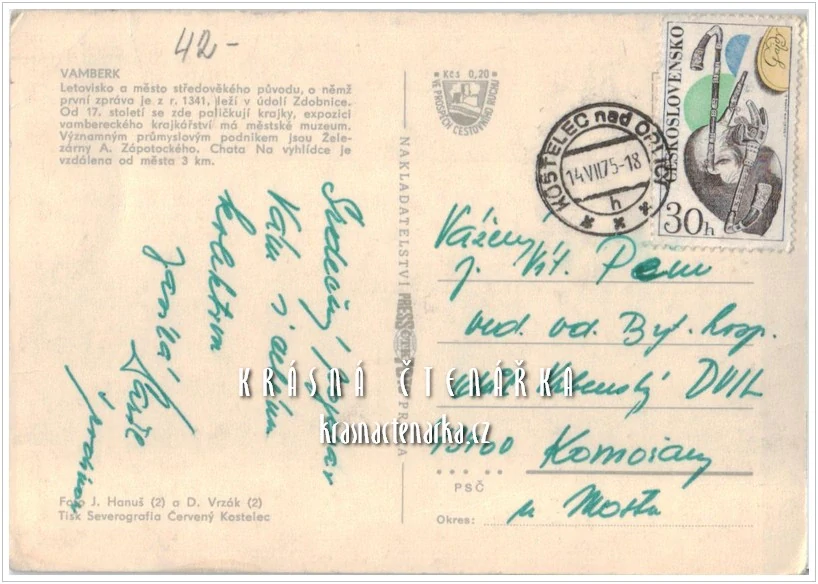 42-
VAMBERK
Letovisko a město středověkého původu, o němž
první zpráva je z r. 1341, leží v údolí Zdobnice.
Od 17. století se zde paličkují krajky, expozici
vambereckého krajkářství má městské muzeum.
Významným průmyslovým podnikem jsou Žele-
zárny A. Zápotockého. Chata Na vyhlídce je
vzdálena od města 3 km.
Kčs 0,20
VE PROSPĚCH CESTOVNÍHO RUCHU
KOSTELEC nad ORLICÍ
14.VII.75-18
h
ČESKOSLOVENSKO
30h
NAKLADATELSTVÍ PRESSFOTO PRAHA
Srdečný pozdrav
Vám i
kolektivu
Vážený
Vít.
ved. od. Byt. hosp.
DVIL
Komořany
u Mostu
PSČ
Okres:
KRÁSNÁ ČTENÁŘKA
krasnactenarka.cz
Foto J. Hanuš (2) a D. Vrzák (2)
Tisk Severografia Červený Kostelec